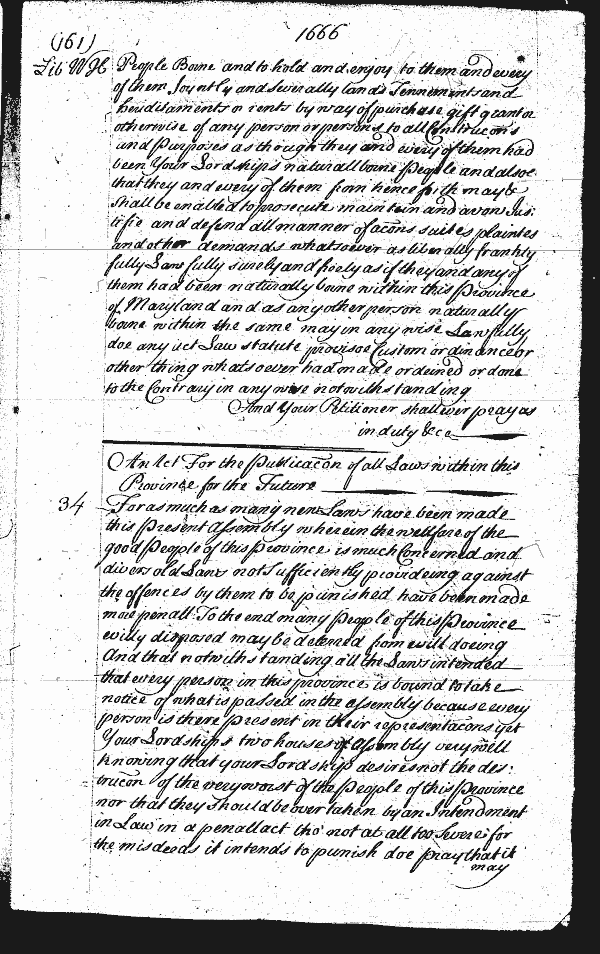 1666
(161)
Lib W H People Borne and to hold and enjoy to them and every
of them Joyntly and Severally Lands Tennements and
Hereditaments or rents by way of purchase gift grant or
otherwise of any person or persons to all Contrucons
and Purposes as though they and every of them had
been Your Lordships naturall borne People and alsoe
that they and every of them from hence forth may &
Shall be enabled to prosecute maintein and avow Jus:
tifie and defend all manner of acons suites plaintes
and other demands whatsoever as liberally frankly
fully Lawfully surely and freely as if they and any of
them had been naturally borne within this Province
of Maryland and as any other person naturally
borne within the same may in any wise Lawfully
doe any act Law statute provisoe Custom ordinance or
other thing whatsoever had made ordeined or done
to the Contrary in any wise notwithstanding
And Your Petitioner shall ever pray as
in duty &ca
An Act For the Publicacon of all Laws within this
Province for the Future
34 Forasmuch as many new Laws have been made
this Present Assembly wherein the wellfare of the
good People of this Province is much Concerned and
divers old Laws not Sufficiently provideing against
the offences by them to be punished have been made
more penall To the end many People of this Province
evilly disposed may be deterred from evill doeing
And that notwithstanding all the Laws intended
that every person in this province is bound to take
notice of what is passed in the assembly because every
person is there Present in their representacons yet
Your Lordships two houses of Assembly very well
knowing that your Lordship desires not the des:
trucon of the very worst of the People of this Province
nor that they should be over taken by an Intendment
in Law in a penall act tho' not at all too severe for
the misdeeds it intends to punish doe pray that it
may